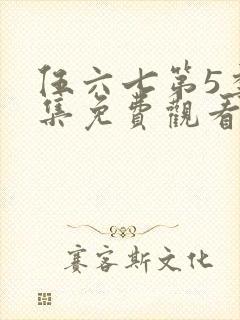 伍六七第5季
集免費觀看
賽客斯文化